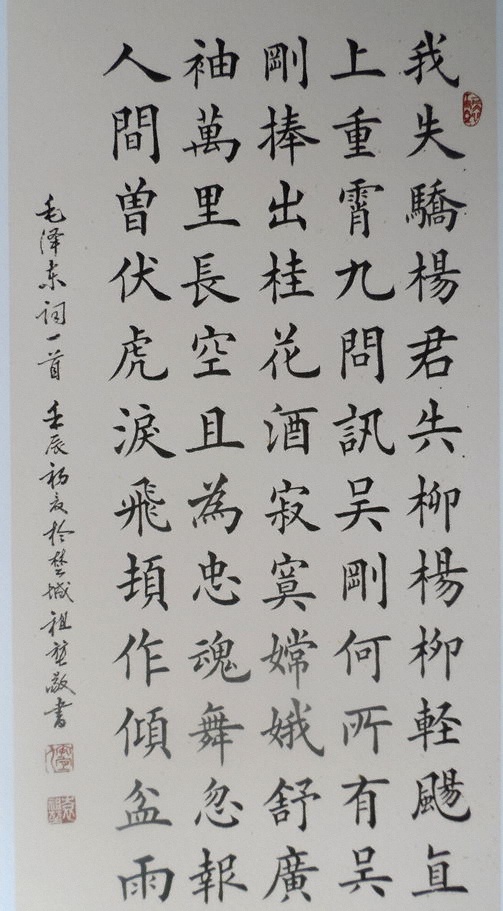 我失驕楊君失柳楊柳軽颺直
上重霄九問訊吳剛何所有吳
剛捧出桂花酒寂寞嫦娥舒廣
袖萬里長空且為忠魂舞忽報
人間曾伏虎淚飛頓作傾盆雨
毛泽东词一首 壬辰初夏於楚城祖敬書